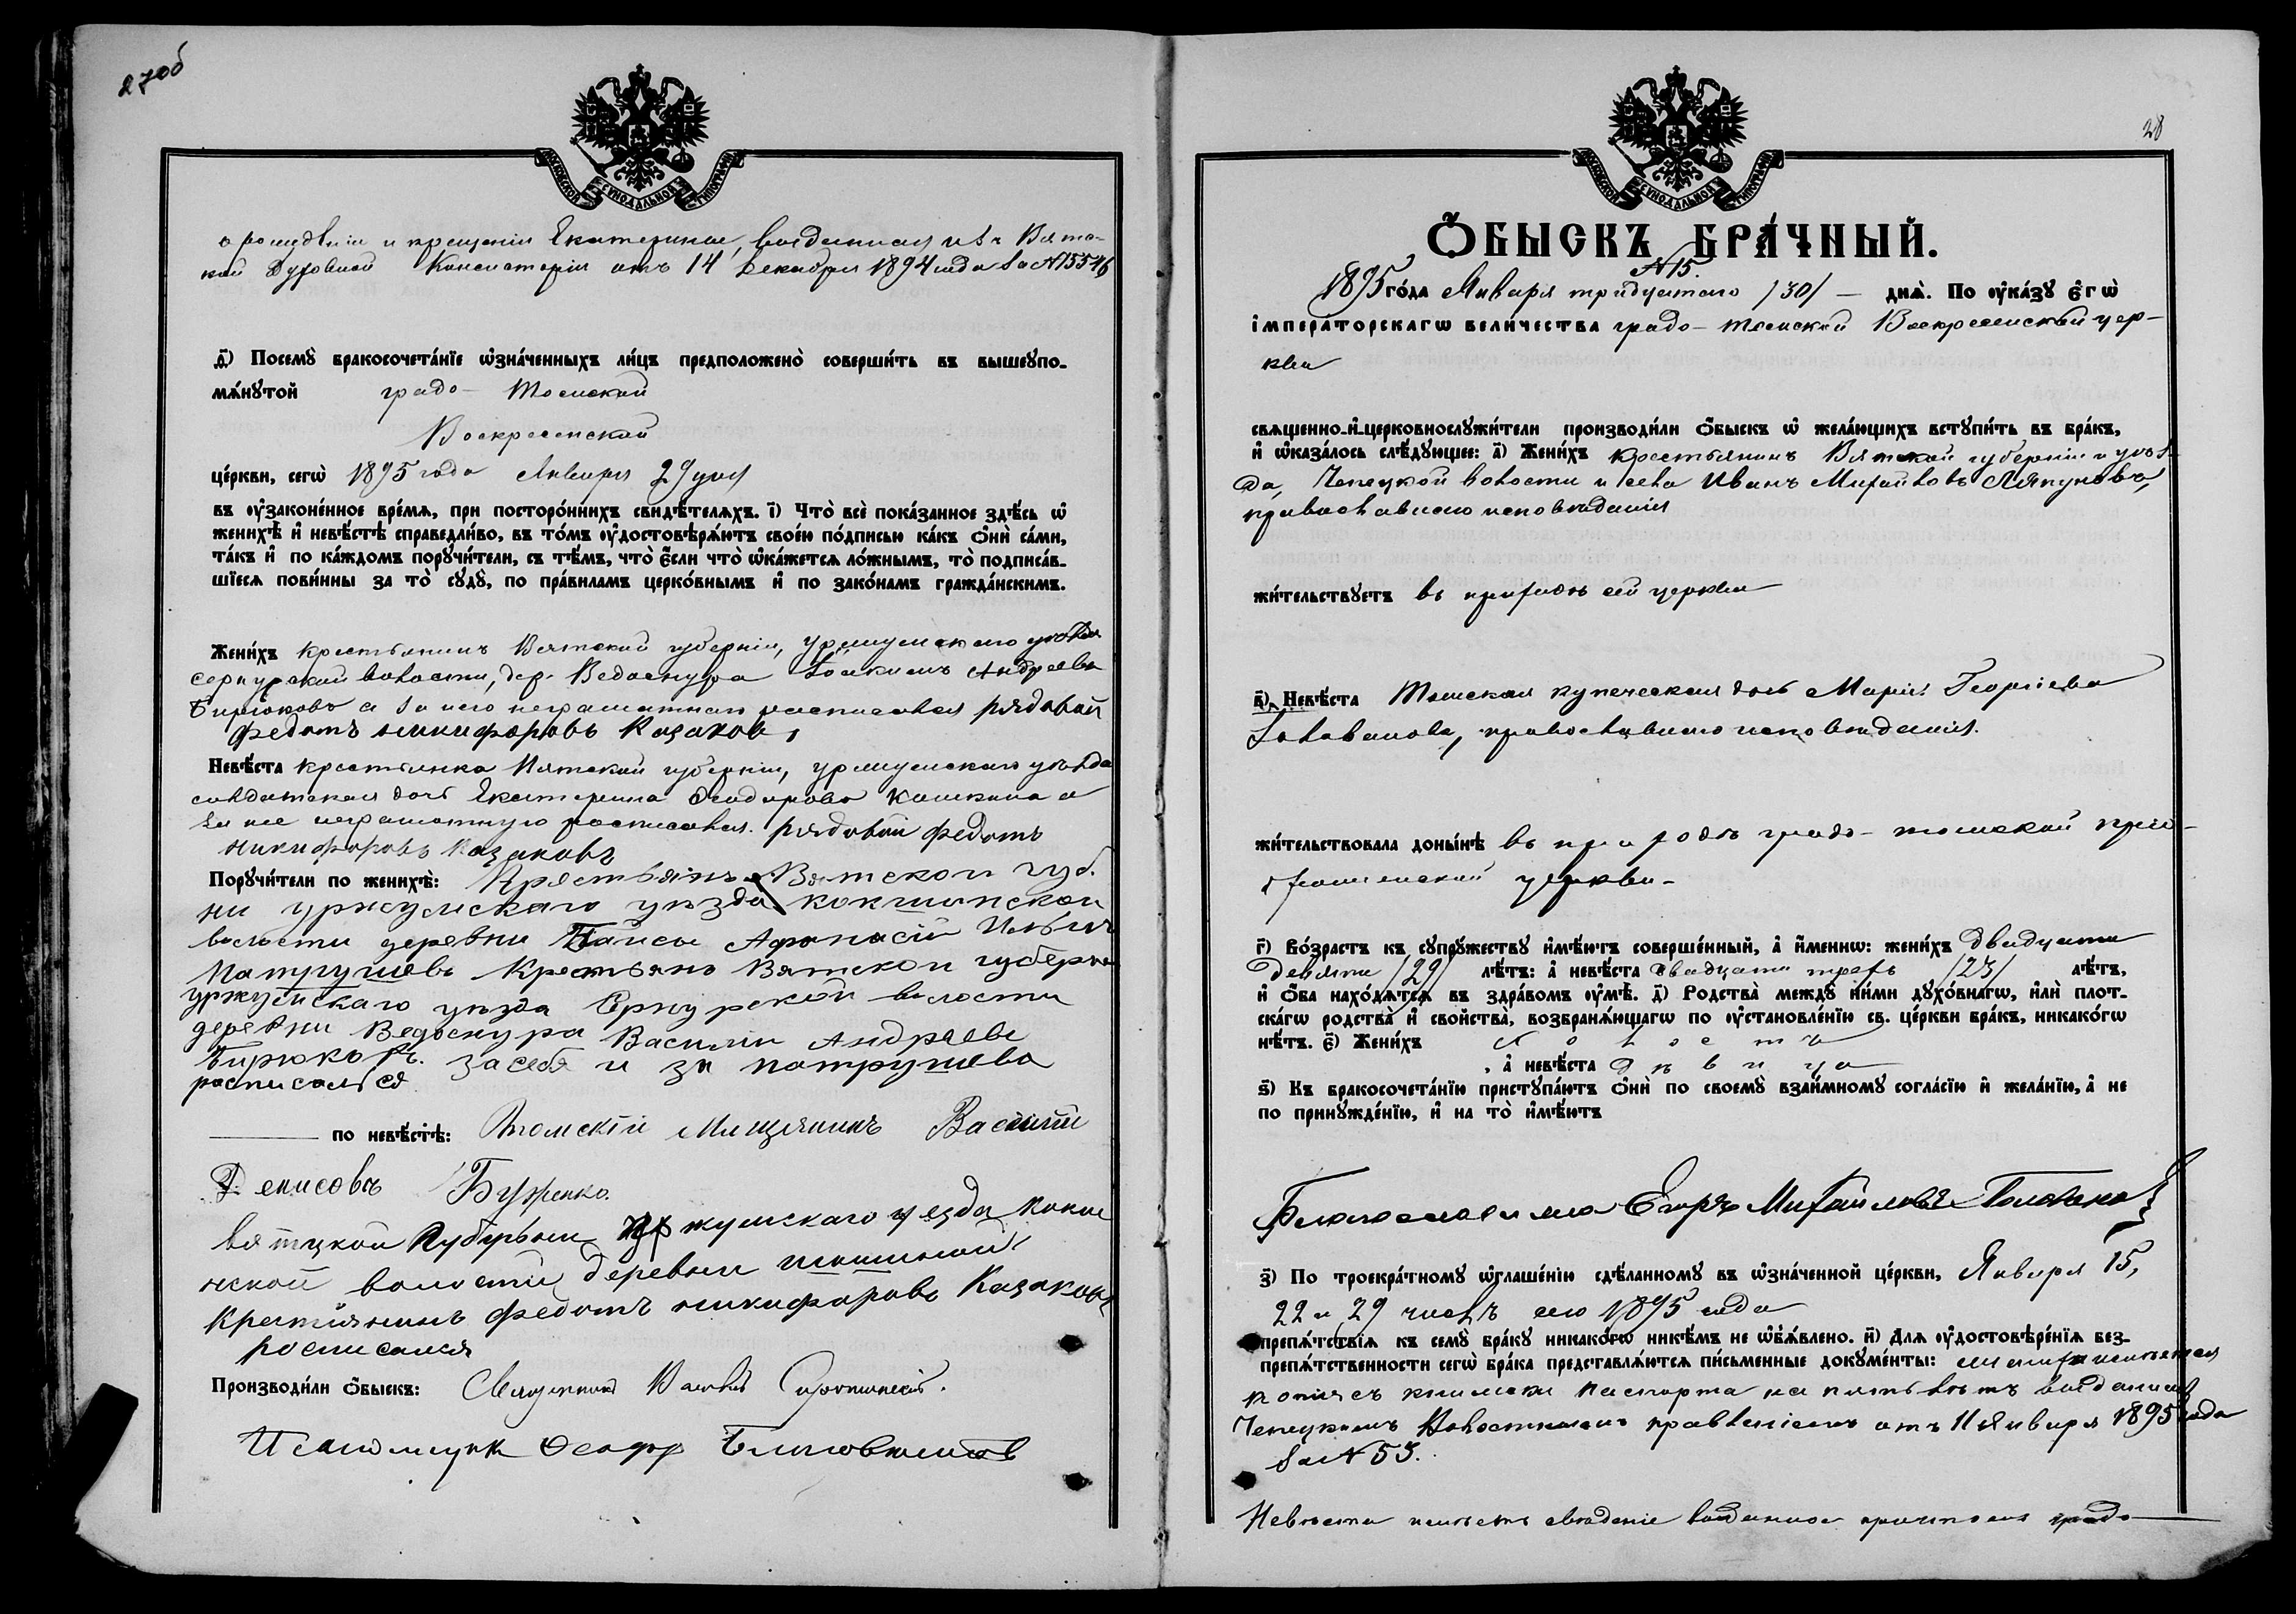 27об
МОСКОВСКОЙ СѴНОДАЛЬНОЙ ТИПОГРАФІИ
о рождении и крещении Екатерины, выданная изъ Вятс-
кой Духовной Консисторіи отъ 14 декабря 1894 года за №15546
д҃) Посемꙋ̀ бракосочета́нїе ѡ҆зна́ченныхъ ли́цъ предположено̀ соверши́ть въ вышеꙋпо-
мѧ́нꙋтой градо-Томской
Воскресенской
це́ркви, сегѡ̀ 1895 года Января 29 дня
въ ᲂу҆зако́ненное вре́мѧ, при посторо́ннихъ свидѣ́телѧхъ. і҃) Что̀ всѐ пока́занное здѣ́сь ѡ҆
женихѣ̀ и҆ невѣ́стѣ справедли́во, въ то́мъ ᲂу҆достовѣрѧ́ютъ свое́ю по́дписью ка́къ ѻ҆нѝ са́ми,
та́къ и҆ по ка́ждомъ порꙋчи́тели, съ тѣ́мъ, что̀ є҆́сли что̀ ѡ҆ка́жетсѧ ло́жнымъ, то̀ подписа́в-
шїесѧ пови́нны за то̀ сꙋдꙋ̀, по пра́виламъ церко́внымъ и҆ по зако́намъ гражда́нскимъ.
Жени́хъ крестьянинъ Вятской губерніи, Уржумскаго уѣзда
Сернурской волости, дер. Ведоснура Іоакимъ Андреевъ
Бирюковъ а за него неграмотнаго росписался рядовой
Федотъ никифоровъ Казаковъ,
Невѣ́ста крестьянка Вятской губерніи, уржумскаго уѣзда
солдатская дочь Екатерина Ѳеодорова Кошкина а
за нее неграмотную росписался. рядовой Федотъ
никифоровъ казаковъ
Порꙋчи́тели по женихѣ̀: Крестьянъ Вятской губ.
ни уржумскаго уезда кокшинской
волости деревни Афонасій Ильичъ
Патрушевъ Крестьянъ Вятской губерни
уржумскаго уезда Сернурской волости
деревни Ведоснура Василіи Андрѣевъ
Бирюковъ. За себя и за патрушева
расписался
по невѣ́стѣ: Томскій Мещянинъ Василій
Денисовъ
вятцкой Губерьни уржумскаго уезда
нской волости деревни
Крестиянинъ Федотъ никифоровъ Казаковъ
росписался
Производи́ли ѻ҆́быскъ: Священникъ
Псаломщик
28
МОСКОВСКОЙ СѴНОДАЛЬНОЙ ТИПОГРАФІИ
Ѻ҆́БЫСКЪ БРА́ЧНЫЙ.
№15.
1895 го́да Января тридцатаго /30/ — днѧ̀. По ᲂу҆ка́зꙋ є҆гѡ̀
і҆мпера́торскагѡ вели́чества градо-томской Воскресенской цер-
кви
свѧще́нно-и҆-церковнослꙋжи́тели производи́ли ѻ҆́быскъ ѡ҆ жела́ющихъ встꙋпи́ть въ бра́къ,
и҆ ѡ҆каза́лось слѣ́дꙋющее: а҃) Жени́хъ крестьянинъ Вятской губерніи и уѣз-
да, Чепецкой волости и села Иванъ Михайловъ Ляпуновъ,
православнаго исповѣданія
жи́тельствꙋетъ въ приходѣ сей церкви
в҃) Невѣ́ста Томская купеческая дочь Марія Георгіева
Голованова, православнаго исповѣданія.
жи́тельствовала доны́нѣ въ приходѣ градо-томской
церкви-
г҃) Во́зрастъ къ сꙋпрꙋ́жествꙋ и҆мѣ́ютъ соверше́нный, а҆ и҆́меннѡ: жени́хъ двадцати
девяти /29/ лѣ́тъ: а҆ невѣ́ста двадцати трехъ /23/ лѣ́тъ,
и҆ ѻ҆́ба нахо́дѧтсѧ въ здра́вомъ ᲂу҆мѣ̀. д҃) Родства̀ междꙋ̀ ни́ми дꙋхо́внагѡ, и҆лѝ плот-
ска́гѡ родства̀ и҆ сво́йства̀, возбранѧ́ющагѡ по ᲂу҆становле́нїю св. це́ркви бра́къ, никако́гѡ
нѣ́тъ. є҃) Жени́хъ холостъ
, а҆ невѣ́ста дѣвица
ѕ҃) Къ бракосочета́нїю пристꙋпа́ютъ ѻ҆нѝ по своемꙋ̀ взаи́мномꙋ согла́сїю и҆ жела́нїю, а҆ не
по принꙋжде́нїю, и҆ на то̀ и҆мѣ́ютъ
Егоръ Михайловъ
з҃) По троекра́тномꙋ ѡ҆глаше́нїю сдѣ́ланномꙋ въ ѡ҆зна́ченной це́ркви, Января 15,
22 и 29 числъ сего 1895 года
препѧ́тствїѧ къ семꙋ̀ бра́кꙋ никако́гѡ никѣ́мъ не ѡ҆б̾ѧ́влено. и҃) Длѧ ᲂу҆достовѣре́нїѧ без-
препѧ́тственности сегѡ̀ бра́ка представлѧ́ютсѧ пи́сьменные докꙋме́нты:
копія съ книжки паспорта на пять лѣтъ выданная
Чепецкимъ Волостнымъ правленіемъ отъ 11 Января 1895 года
за №53.
Невѣста имѣетъ свѣденіе выданное причтомъ градо-